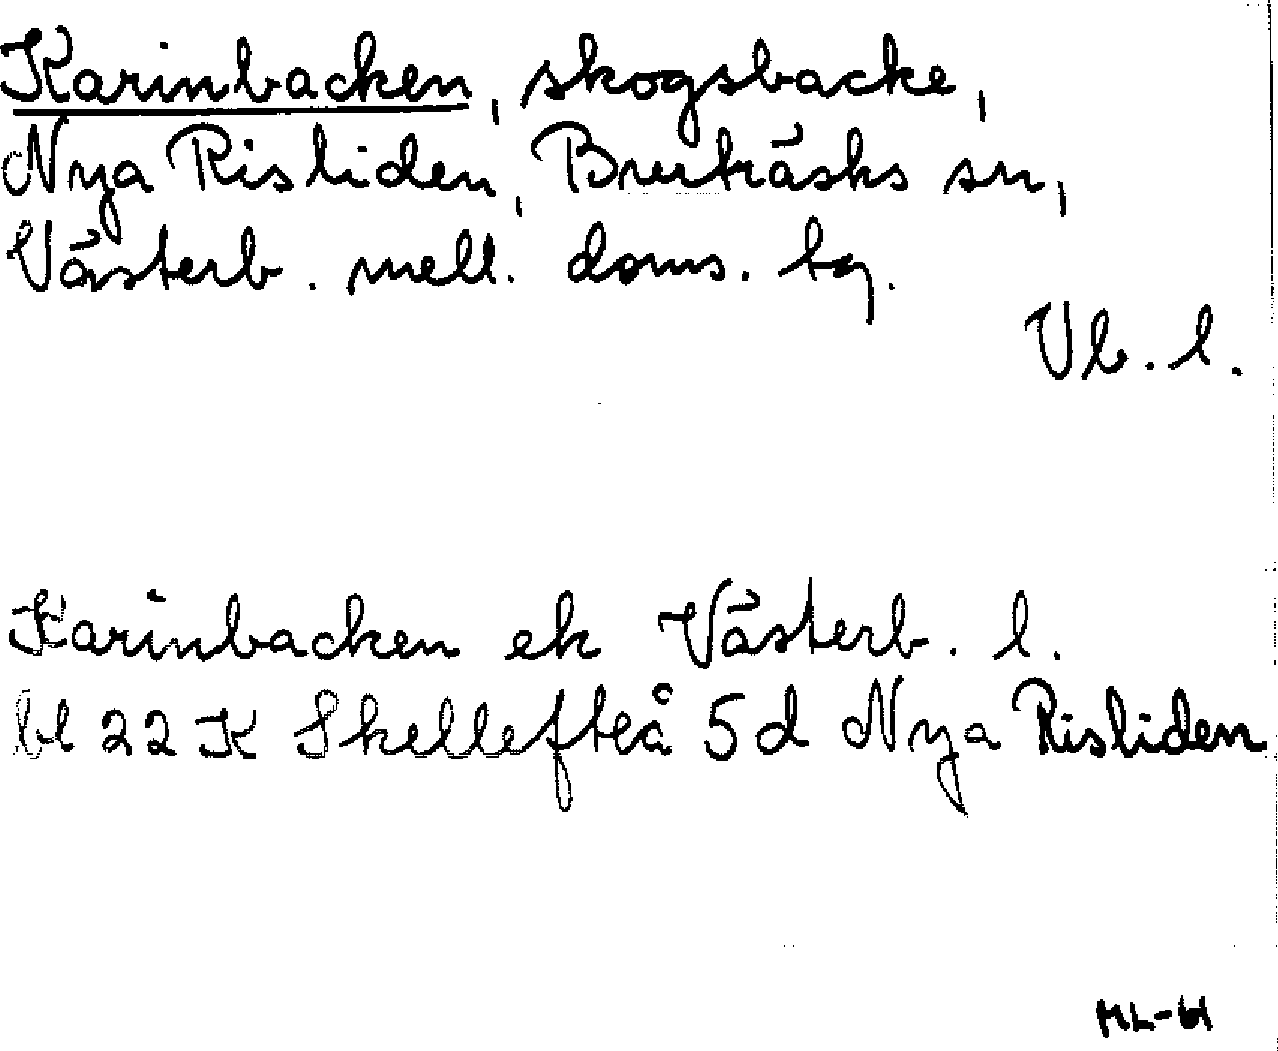 Karinbacken, skogsbacke,
Nya Risliden, Burträsks sn,
Västerb. mell. doms. bg.
Vb. l.
Karinbacken ek Västerb. l.
bl 22 K Skellefteå 5d Nya Risliden
ML-61